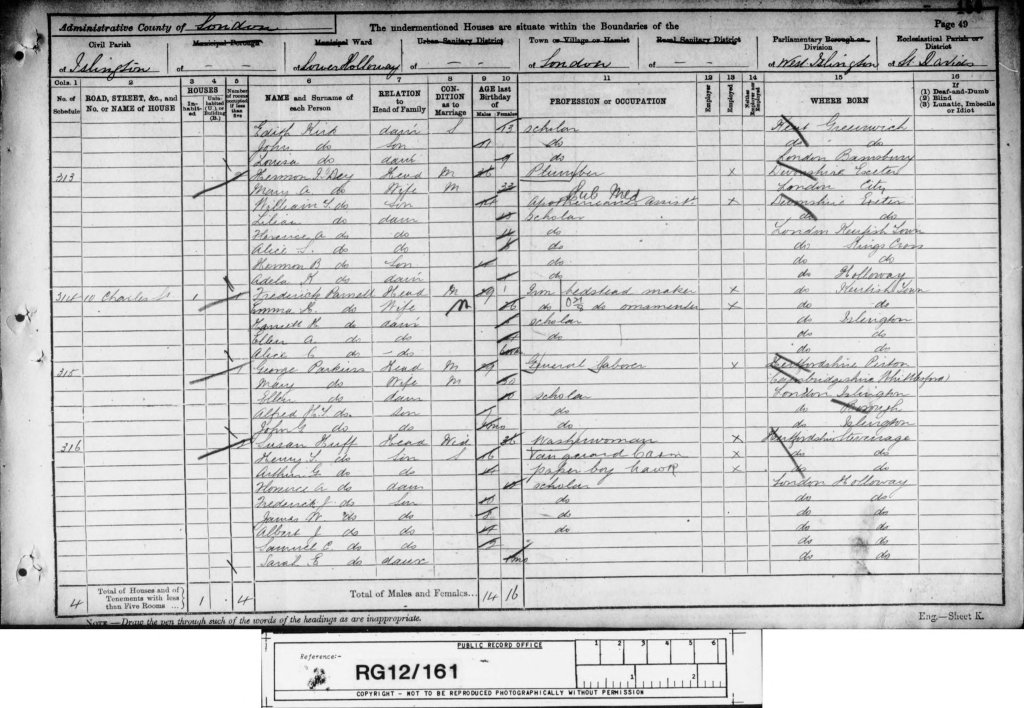 Administrative County of London The undermentioned Houses are situate within the Boundaries of the Page 49
Civil Parish Municipal Borough Municipal Ward Urban Sanitary District Town or Village or Hamlet Rural Sanitary District Parliamentary Borough or Division Ecclesiastical Parish or District
of Islington of — — of Lower Holloway of — — of London of of West Islington of St. Davids
Cols. 1 2 3 4 5 6 7 8 9 10 11 12 13 14 15 16
No. of Schedule ROAD, STREET, &c., and No. or NAME of HOUSE HOUSES Inhabited Uninhabited (U.), or Building (B.) Number of rooms occupied if less than five NAME and Surname of each Person RELATION to Head of Family CONDITION as to Marriage AGE last Birthday of Males Females PROFESSION or OCCUPATION Employer Employed Neither Employer nor Employed WHERE BORN If (1) Deaf-and-Dumb (2) Blind (3) Lunatic, Imbecile or Idiot
Edith Kirk daur S 13 scholar Kent Greenwich
John do son 11 do do do
Louisa do daur 9 do London Barnsbury
313 Hermon J. Dey Head M Plumber x Devonshire Exeter
Mary A. do Wife M 33 London City
William do Son 14 Sub Med Apothecaries assist x Devonshire Exeter
Lilian do daur Scholar do do
Florence A do do do London Kentish Town
Alice do do do do Kings Cross
Hermon B do Son do do do
Adela K do daur do do Holloway
314 10 Charles St 1 Frederick Parnell Head M 29 Iron bedstead maker x do Kentish Town
Emma do Wife M 26 do do do ornamenter x do do
Harriett do daur scholar do Islington
Ellen A do do do do do
Alice C do do do do
315 George Parkiss Head M General Laborer x Hertfordshire Pirton
Mary do Wife M 30 Cambridgeshire
Ellen do daur scholar London Islington
Alfred do son 7 do do Borough
John G do do do Islington
316 Susan Huff Head Wid 36 Washerwoman x Hertfordshire Stevenage
Henry do Son S 16 Van guard x do do
Arthur G. do do 14 paper boy hawk x do do
Florence A do daur scholar London Holloway
Frederick J do Son do do do
James W do do 8 do do do
Albert J do do do do do
Samuel C. do do do do
Sarah E do daur do do
4 Total of Houses and of Tenements with less than Five Rooms ... 1 4 Total of Males and Females... 14 16
NOTE.—Draw the pen through such of the words of the headings as are inappropriate. Eng.—Sheet K.
PUBLIC RECORD OFFICE
Reference:-
RG12/161
1 2 3 4 5 6
1 2
COPYRIGHT - NOT TO BE REPRODUCED PHOTOGRAPHICALLY WITHOUT PERMISSION